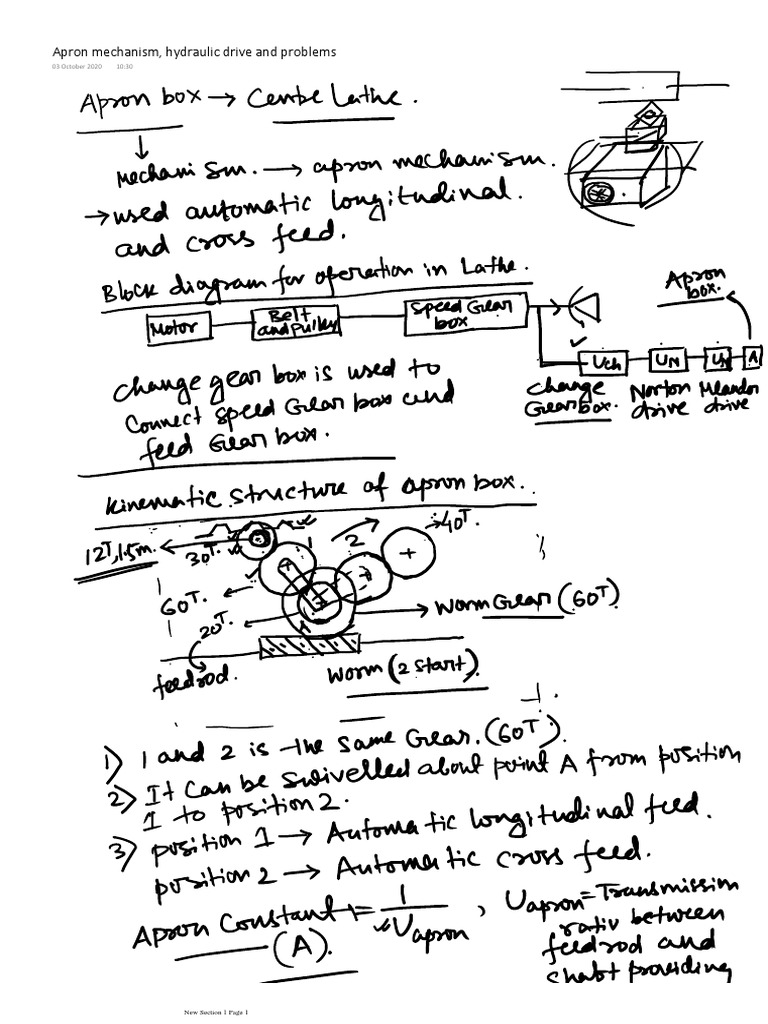 Apron mechanism, hydraulic drive and problems
03 October 2020 10:30
Apron box → Centre Lathe.
↓
Mechanism. → apron mechanism.
→ used automatic longitudinal.
and cross feed.
Block diagram for operation in Lathe.
Apron
box.
Motor
Belt
and pulley
Speed Gear
box
Uch
UN
UM
A
Change
Gearbox.
Norton
drive
Meander
drive
Change gear box is used to
Connect speed Gear box and
feed Gear box.
Kinematic structure of apron box.
12T, 1.5m.
30T.
1
2
→40T.
60T.
20T.
A
Worm Gear (60T)
feedrod.
Worm (2 start).
1) 1 and 2 is the same Gear. (60T).
2) It can be swivelled about point A from position
1 to position 2.
3) position 1 → Automatic longitudinal feed.
position 2 → Automatic cross feed.
Apron Constant = 1/Uapron ,
(A).
Uapron = Transmission
ratio between
feedrod and
shaft providing
New Section 1 Page 1